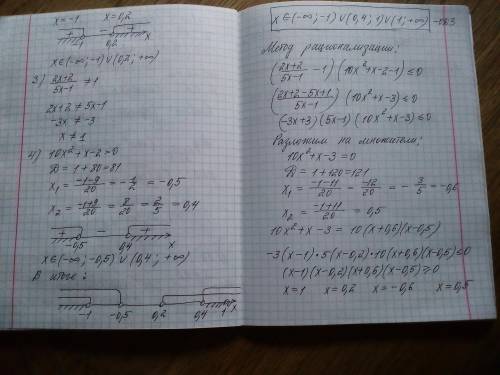 x = -1   x = 0,2
+   -   +
-1   0,2   x
x ∈ (-∞; -1) ∪ (0,2; +∞)
3) (2x+2)/(5x-1) ≠ 1
2x+2 ≠ 5x-1
-3x ≠ -3
x ≠ 1
4) 10x² + x - 2 > 0
D = 1 + 80 = 81
x₁ = (-1-9)/20 = -1/2 = -0,5
x₂ = (-1+9)/20 = 8/20 = 2/5 = 0,4
+   -   +
-0,5   0,4   x
x ∈ (-∞; -0,5) ∪ (0,4; +∞)
В итоге:
-1   -0,5   0,2   0,4   1   x
x ∈ (-∞; -1) ∪ (0,4; 1) ∪ (1; +∞)
Метод рационализации:
((2x+2)/(5x-1) - 1)(10x² + x - 2 - 1) ≤ 0
((2x+2-5x+1)/(5x-1))(10x² + x - 3) ≤ 0
(-3x+3)(5x-1)(10x² + x - 3) ≤ 0
Разложим на множители:
10x² + x - 3 = 0
D = 1 + 120 = 121
x₁ = (-1-11)/20 = -12/20 = -3/5 = -0,6
x₂ = (-1+11)/20 = 0,5
10x² + x - 3 = 10(x+0,6)(x-0,5)
-3(x-1)·5(x-0,2)·10(x+0,6)(x-0,5) ≤ 0
(x-1)(x-0,2)(x+0,6)(x-0,5) ≥ 0
x = 1   x = 0,2   x = -0,6   x = 0,5